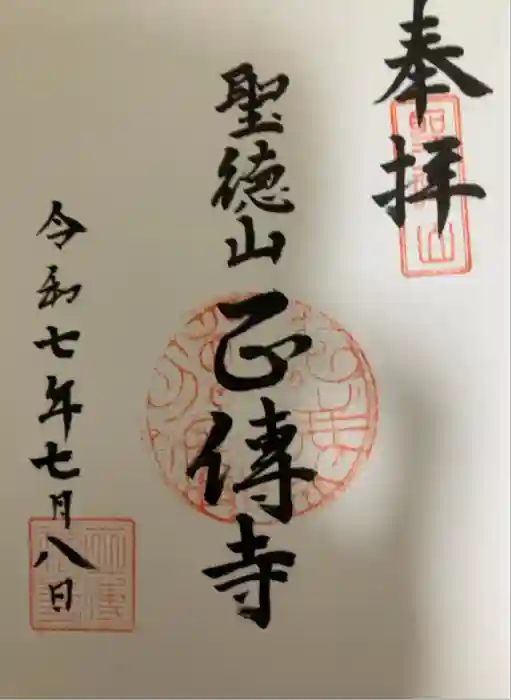 奉拝
聖徳山
正傳寺
令和七年七月八日